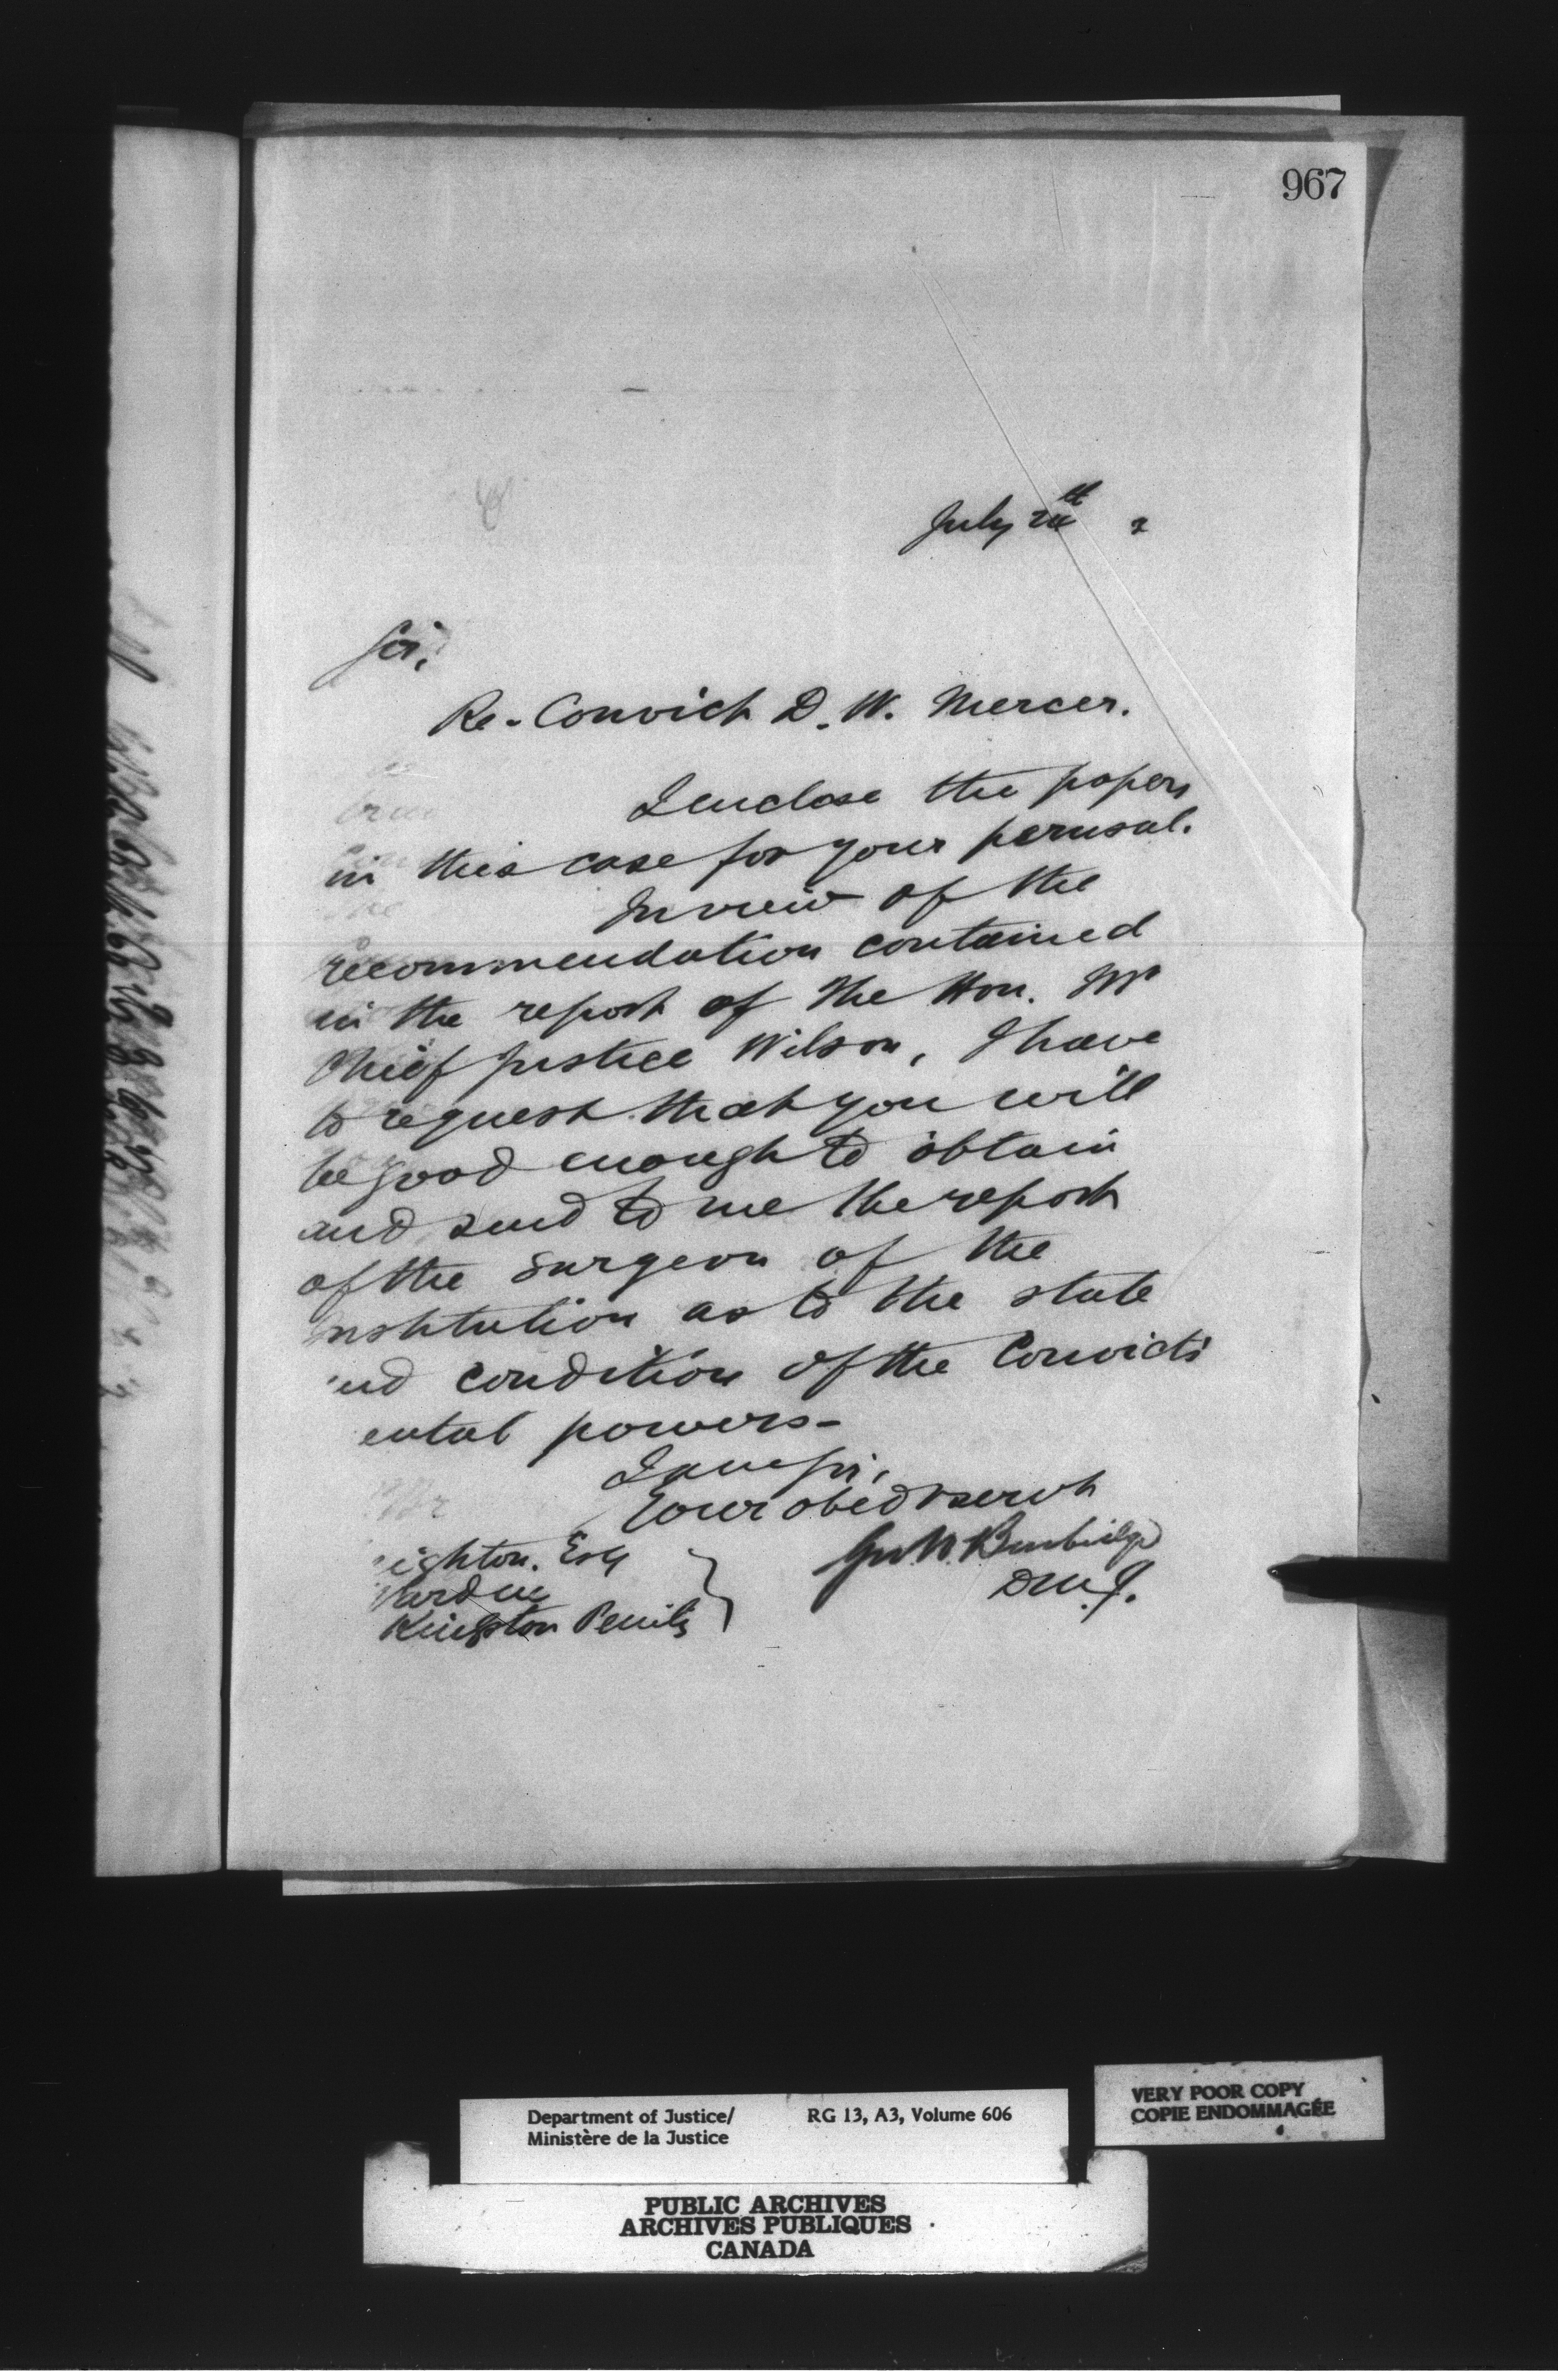 967
July 24th 2
Sir,
Re-Convict D. W. Mercer.
I enclose the papers
in this case for your perusal.
In view of the
recommendation contained
in the report of the Hon. Mr
Chief Justice Wilson, I have
to request that you will
be good enough to obtain
and send to me the report
of the surgeon of the
institution as to the state
nd condition of the Convicts
ental powers-
I am Sir,
Your obed servt
Geo W. Burbidge
D.M.J.
eighton. Esq
Warden
Kingston Penity
Department of Justice/
Ministère de la Justice
RG 13, A3, Volume 606
VERY POOR COPY
COPIE ENDOMMAGÉE
PUBLIC ARCHIVES
ARCHIVES PUBLIQUES
CANADA